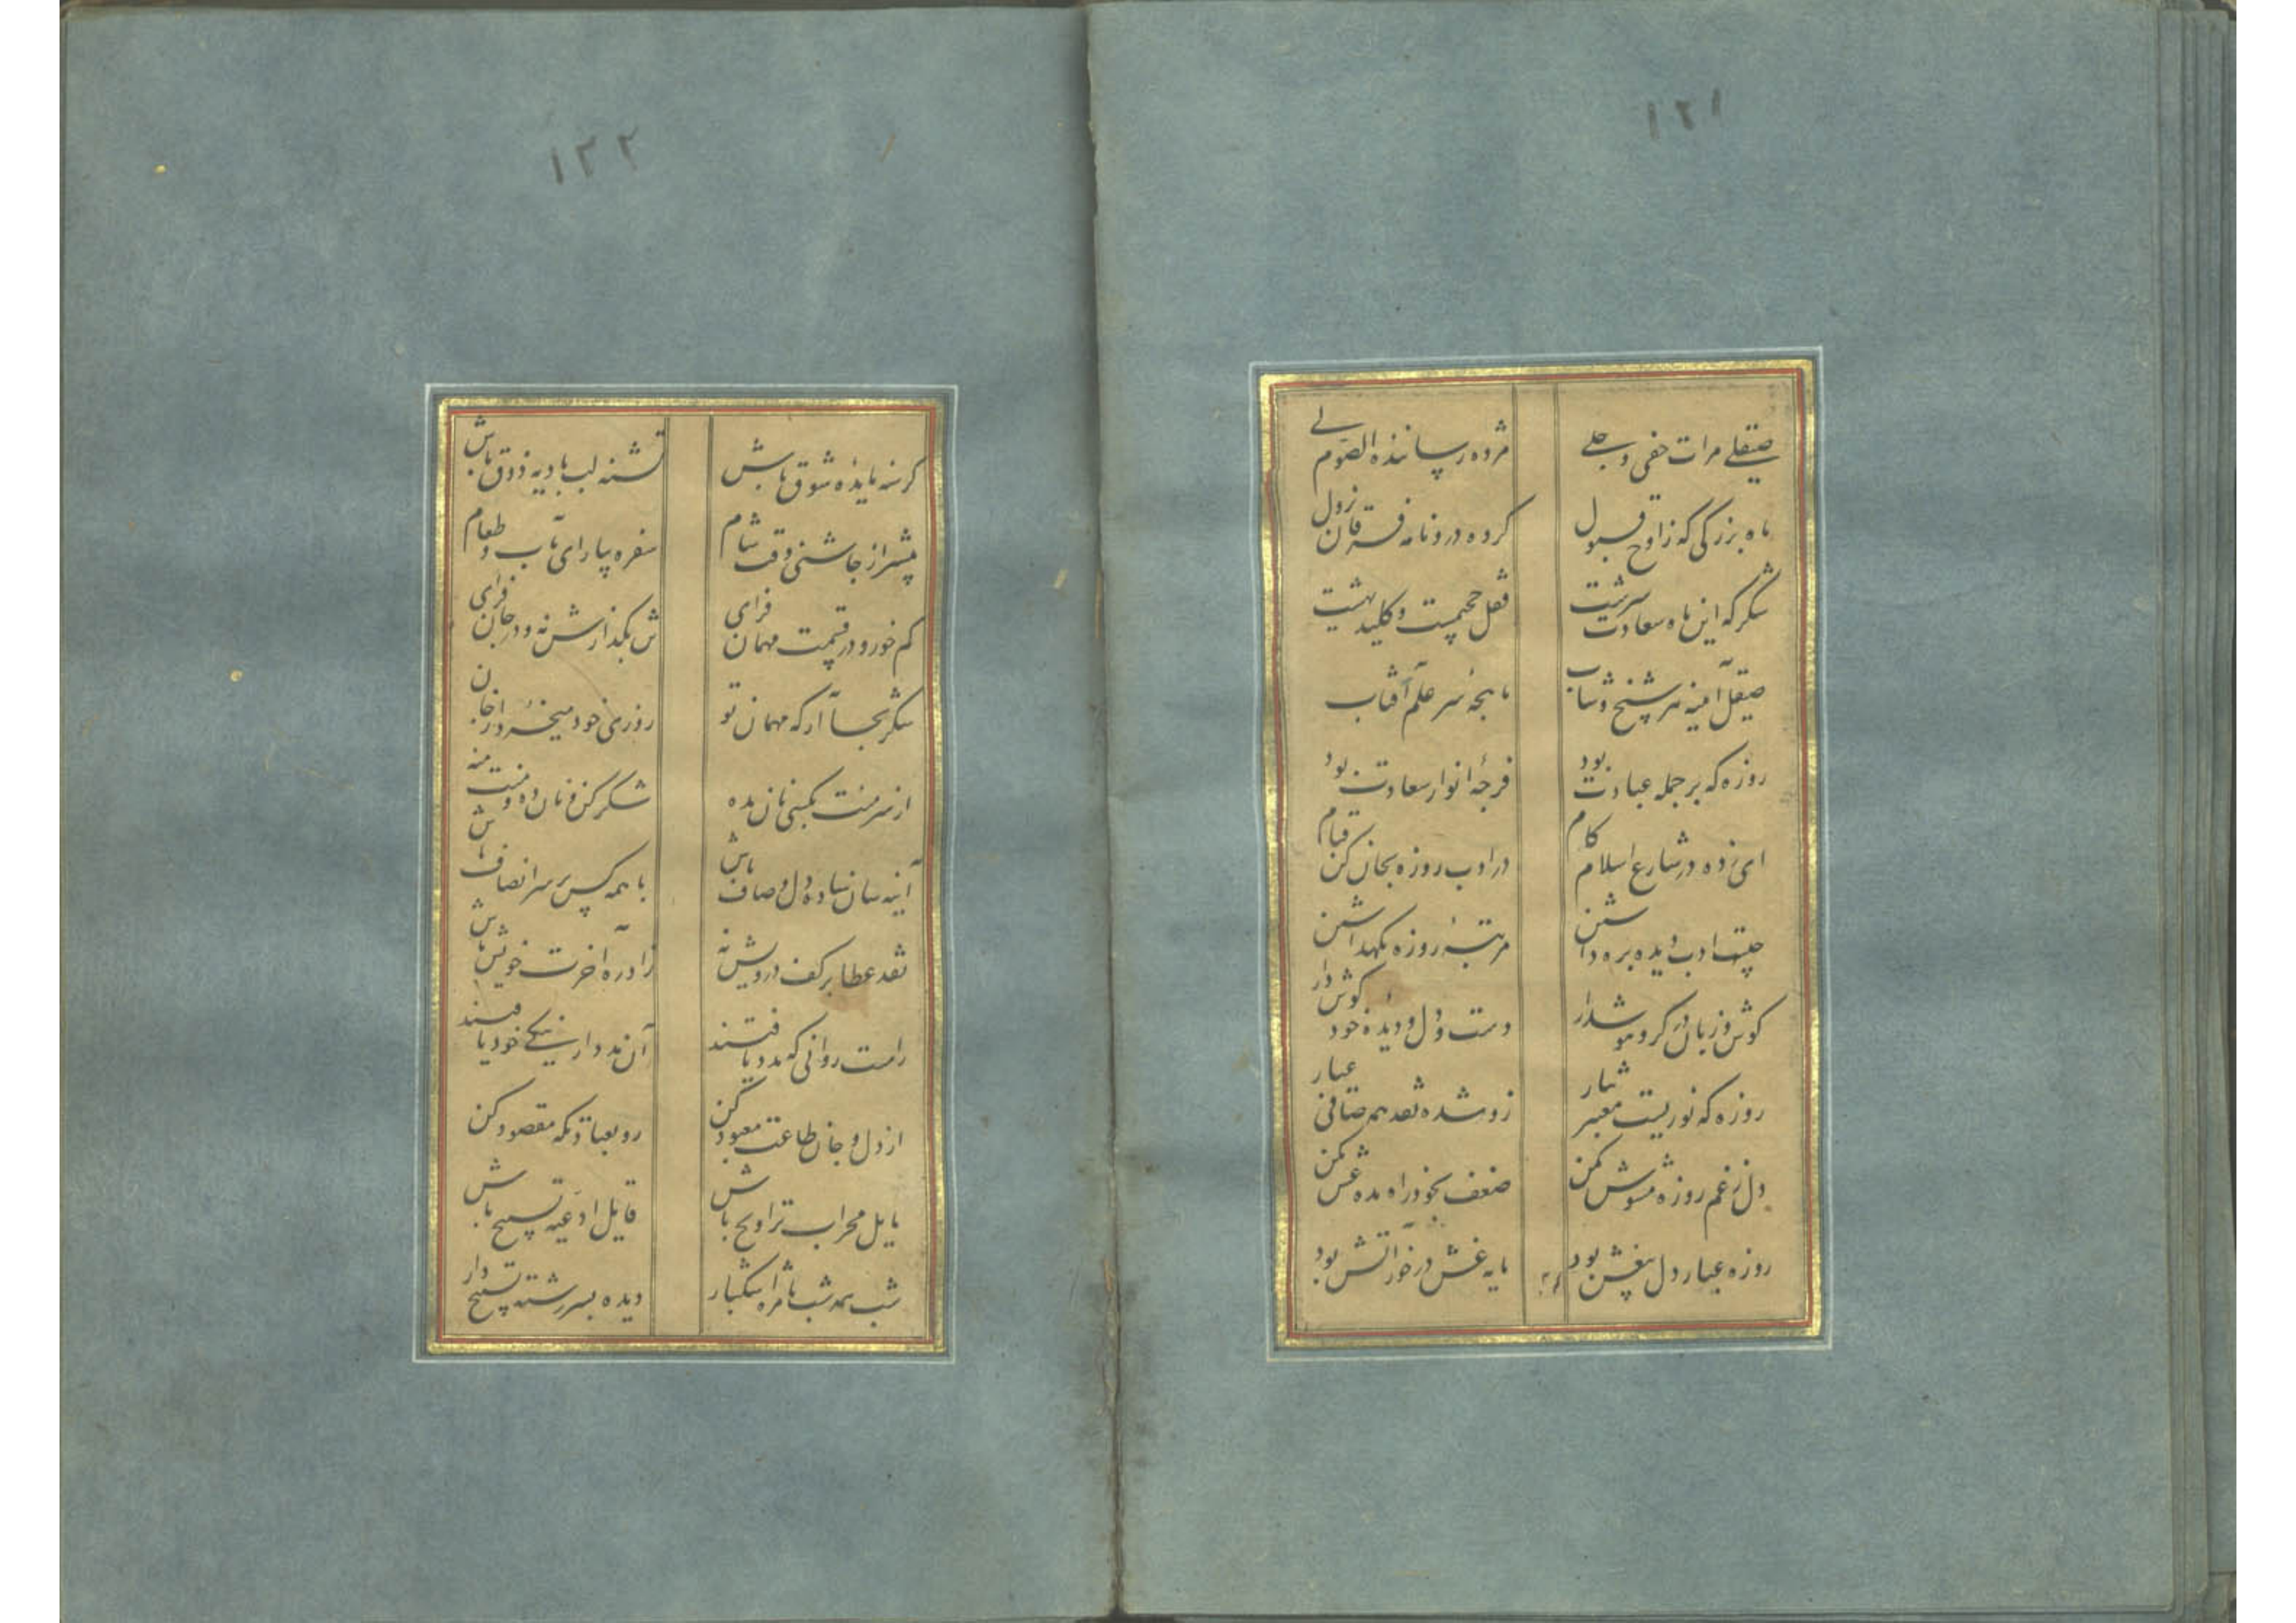 ١٢١
صیقلے مرات خفی و جلے
مژده رسانندهٔ الصوم لے
ماه بزرگی که ز اوج قبول
کرده درو نامه فرقان نزول
شکر که این ماه سعادت سرشت
قفل جحیمست و کلید بهشت
صیقل آینه هر شیخ و شاب
پنجه سر علم آفتاب
روزه که بر جمله عبادت بود
انوار سعادت بود
ای زده در شارع اسلام کام
در ادب روزه بجان کن قیام
چیست ادب دیده بره داشتن
مرتبهٔ روزه نگهداشتن
گوش و زبان در گرو هوشدار
دست و دل و دیدهٔ خود گوش دار
روزه که نوریست معبر شمار
زو شده نقد همه صافی عیار
دل ز غم روزه مشوش مکن
ضعف بخود راه مده غش مکن
روزه عیار دل بیغش بود
مایه غش در خور آتش بود
١٢٢
گرسنه مایدهٔ شوق باش
تشنه لب بادیه ذوق باش
پیشتر از چاشنی وقت شام
سفره بیارای بآب و طعام
کم خور و در قسمت مهمان فزای
بگذارش نه و در جان فزای
شکر بجا آر که مهمان تو
روزی خود میخورد از خان
از سر منت بکسی نان مده
شکر کن و نان ده و منت منه
آینه سان ساده دل و صاف باش
با همه کس بر سر انصاف باش
نقد عطا بر کف درویش نه
زاد ره آخرت خویش باش
راست روانی که مدد یافتند
آن مدد از نیکے خود یافتند
از دل و جان طاعت معبود کن
رو بعبادتکه مقصود کن
مایل محراب تراویح باش
قایل ادعیه تسبیح باش
شب همه شب با مژه اشکبار
دیده بسر رشته تسبیح دار